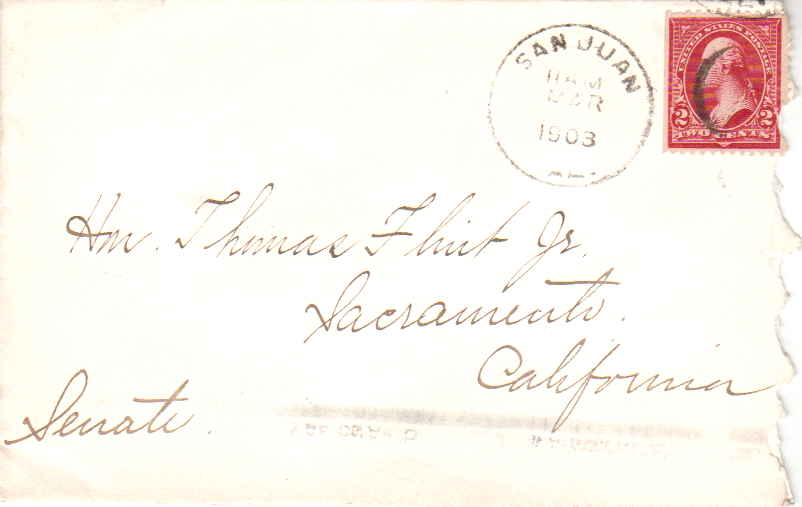 SAN JUAN
11 AM
MAR
1903
UNITED STATES POSTAGE
2 2
TWO CENTS
Hon. Thomas Flint Jr.
Sacramento.
California
Senate.